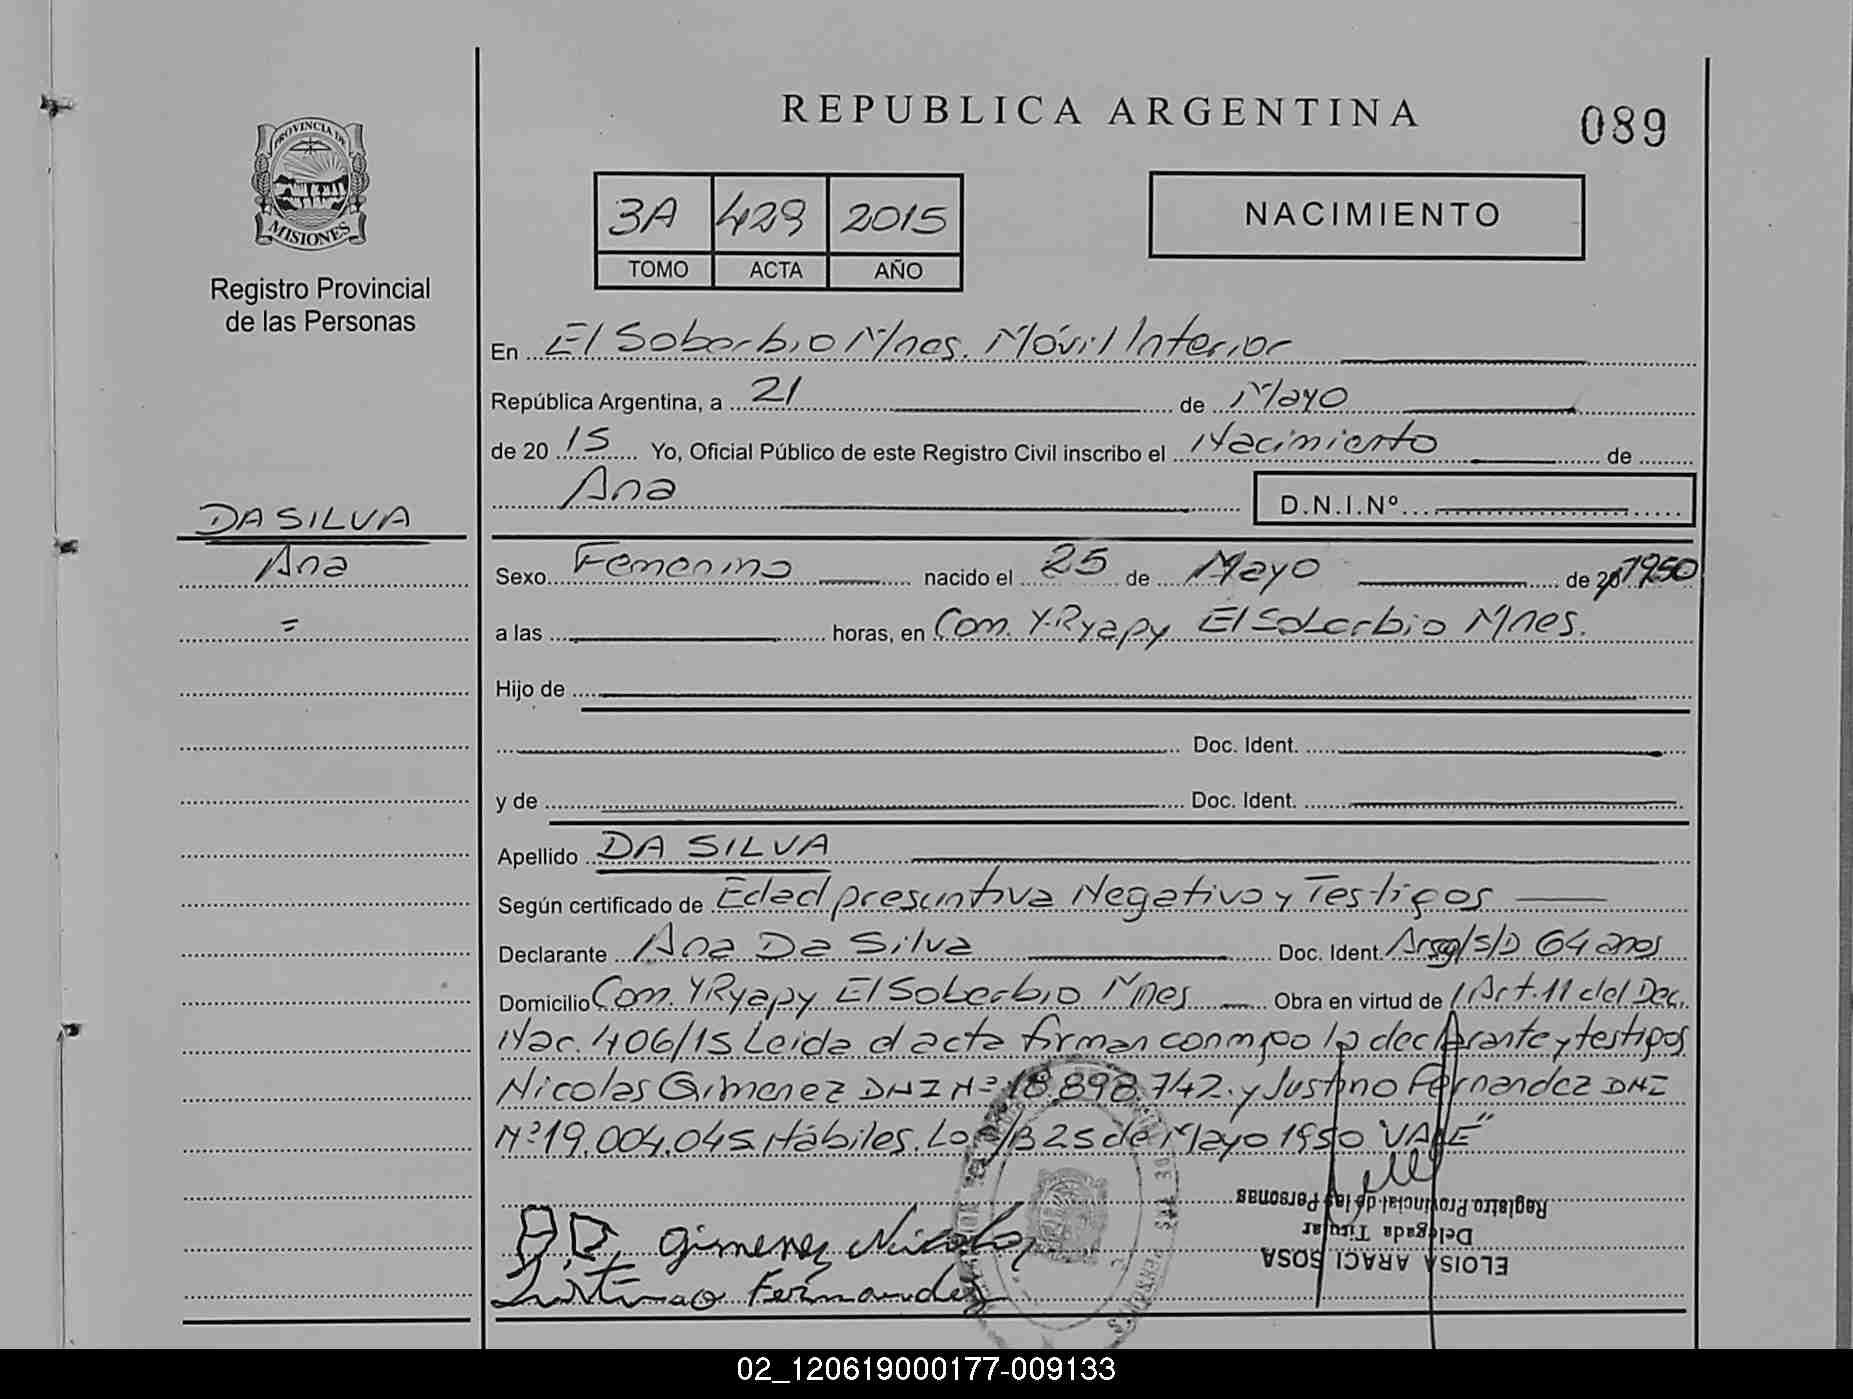 REPUBLICA ARGENTINA
089
PROVINCIA DE
MISIONES
Registro Provincial
de las Personas
3A 429 2015
TOMO ACTA AÑO
NACIMIENTO
En El Soberbio Mnes. Móvil Interior
República Argentina, a 21 de Mayo
de 20 15 Yo, Oficial Público de este Registro Civil inscribo el Nacimiento de
Ana D.N.I.Nº
DA SILVA
Ana
=
Sexo Femenino nacido el 25 de Mayo de 20 1950
a las horas, en Com. YRyapy El Soberbio Mnes.
Hijo de
Doc. Ident.
y de Doc. Ident.
Apellido DA SILVA
Según certificado de Edad presuntiva Negativo y Testigos
Declarante Ana Da Silva Doc. Ident. Arg/S/D 64 anos
Domicilio Com. YRyapy El Soberbio Mnes Obra en virtud de Art. 11 del Dec.
Nac. 406/15 Leida el acta firman conmigo la declarante y testigos
Nicolas Gimenez DNI Nº 18.898.742. y Justino Fernandez DNI
Nº 19.004.045 Hábiles. Lo S/B 25 de Mayo 1950 "VALE"
Registro Provincial de las Personas
Delegada Titular
ELOISA ARACI SOSA
A.D. Gimenez Nicolas
Justino Fernandez
02_120619000177-009133